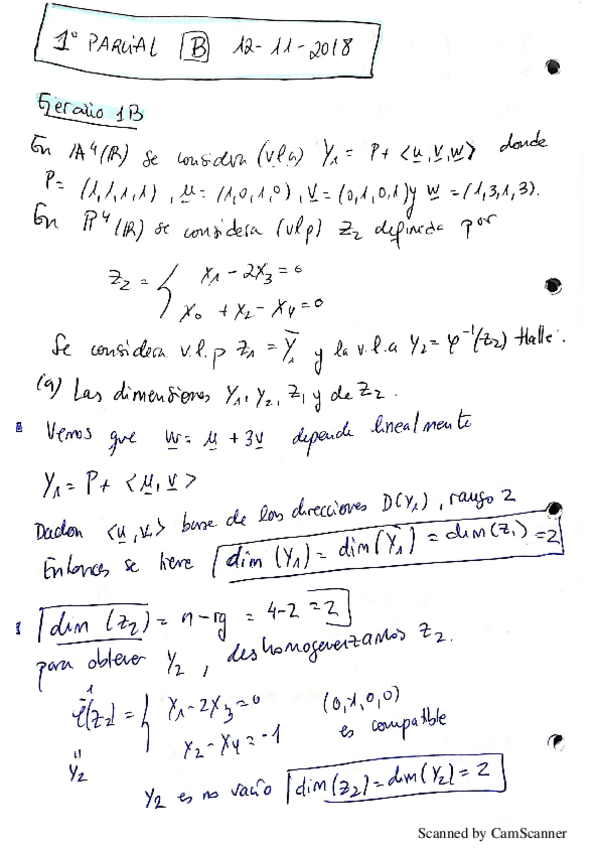 1º PARCIAL B 12-11-2018
Ejercicio 1B
En A⁴(R) se considera (v.l.a) Y₁ = P + <u, v, w> donde
P = (1,1,1,1), u = (1,0,1,0), v = (0,1,0,1) y w = (1,3,1,3).
En P⁴(R) se considera (vlp) Z₂ definida por
Z₂ = { x₁ - 2x₃ = 0
x₀ + x₂ - x₄ = 0
Se considera v.l.p Z₁ = Ȳ₁ y la v.l.a Y₂ = φ⁻¹(Z₂) Halle:
(a) Las dimensiones Y₁, Y₂, Z₁ y de Z₂.
Vemos que w = u + 3v depende linealmente
Y₁ = P + <u, v>
Dadon <u, v> base de las direcciones D(Y₁), rango 2
Entonces se tiene dim (Y₁) = dim (Ȳ₁) = dim (Z₁) = 2
dim (Z₂) = n - rg = 4 - 2 = 2
para obtener Y₂, deshomogeneizamos Z₂.
φ⁻¹(Z₂) = { x₁ - 2x₃ = 0 (0,1,0,0)
x₂ - x₄ = -1 es compatible
"
Y₂
Y₂ es no vacío dim (Z₂) = dim (Y₂) = 2
Scanned by CamScanner